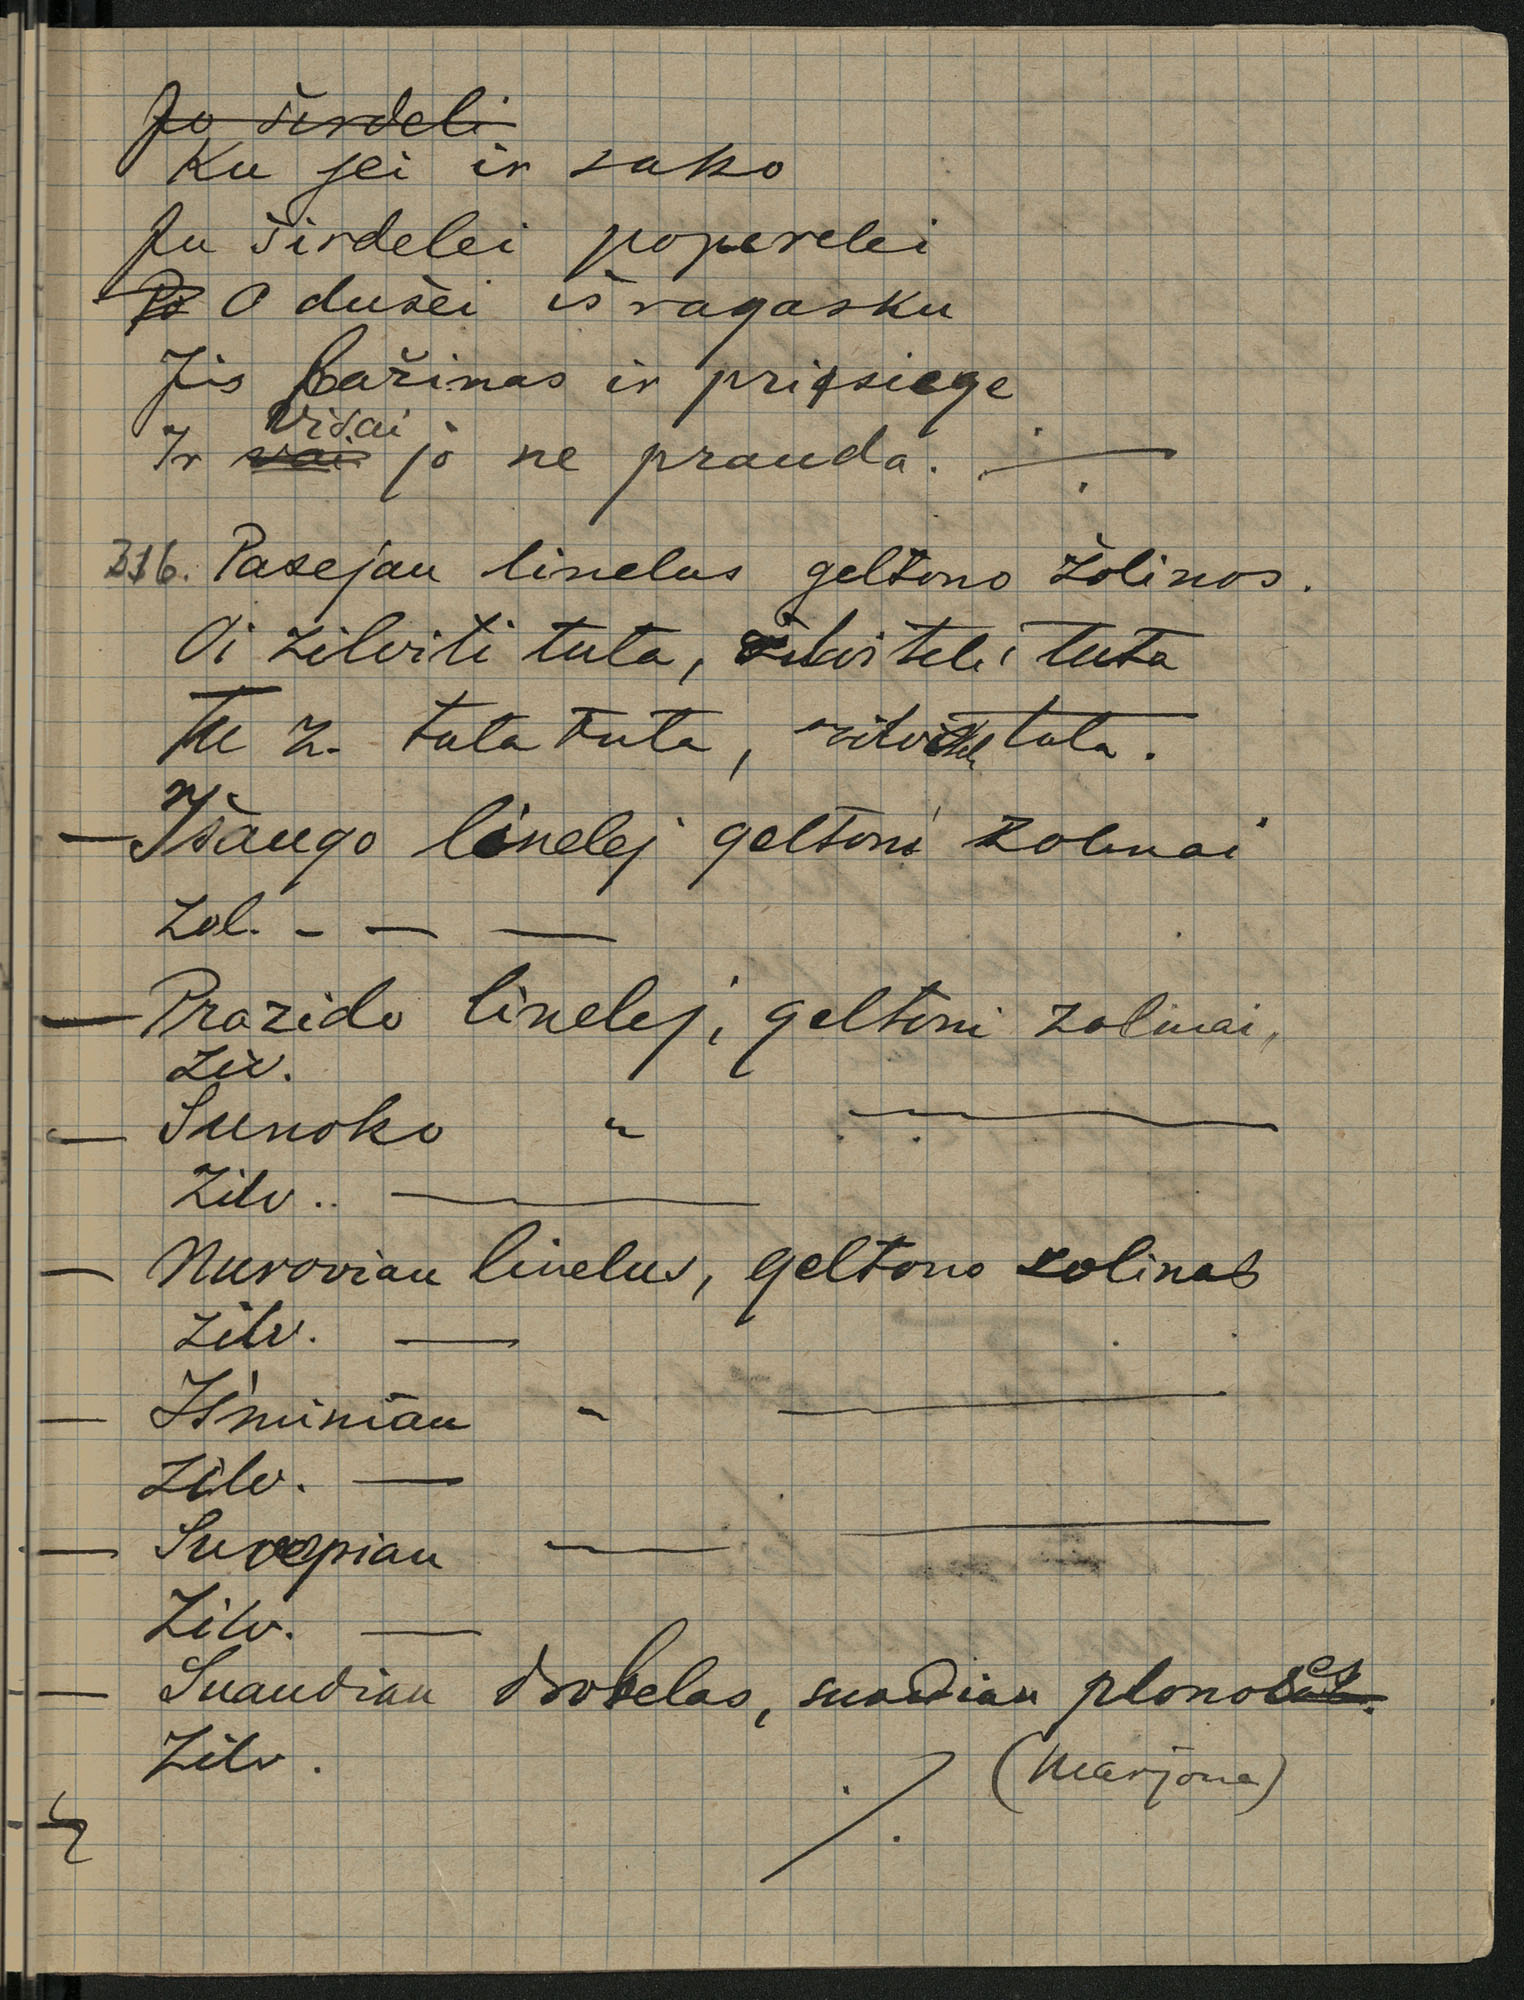 Jo širdeli
Ku jei ir sako
Ju širdelei poperelei
O dušei išragasku
Jis bažinas ir prisiege
Ir visai jo ne prauda.
316. Pasejau linelus geltono žolinos.
Oi zilviti tuta, zilviteli tuta
Tu z. tuta tuta, tuta.
— Išaugo linelej geltoni zolinai
Zol. - — —
— Prazido linelej, geltoni zolinai,
Ziv.
— Sunoko " —
Zilv.. —
— Nuroviau linelus, geltono zolinas
Zilv. —
— Išminiau " —
Zilv. —
— Suverpiau — —
Zilv. —
— Suaudiau drobelas, suaudiau plonoses.
Zilv.
(Marjona)